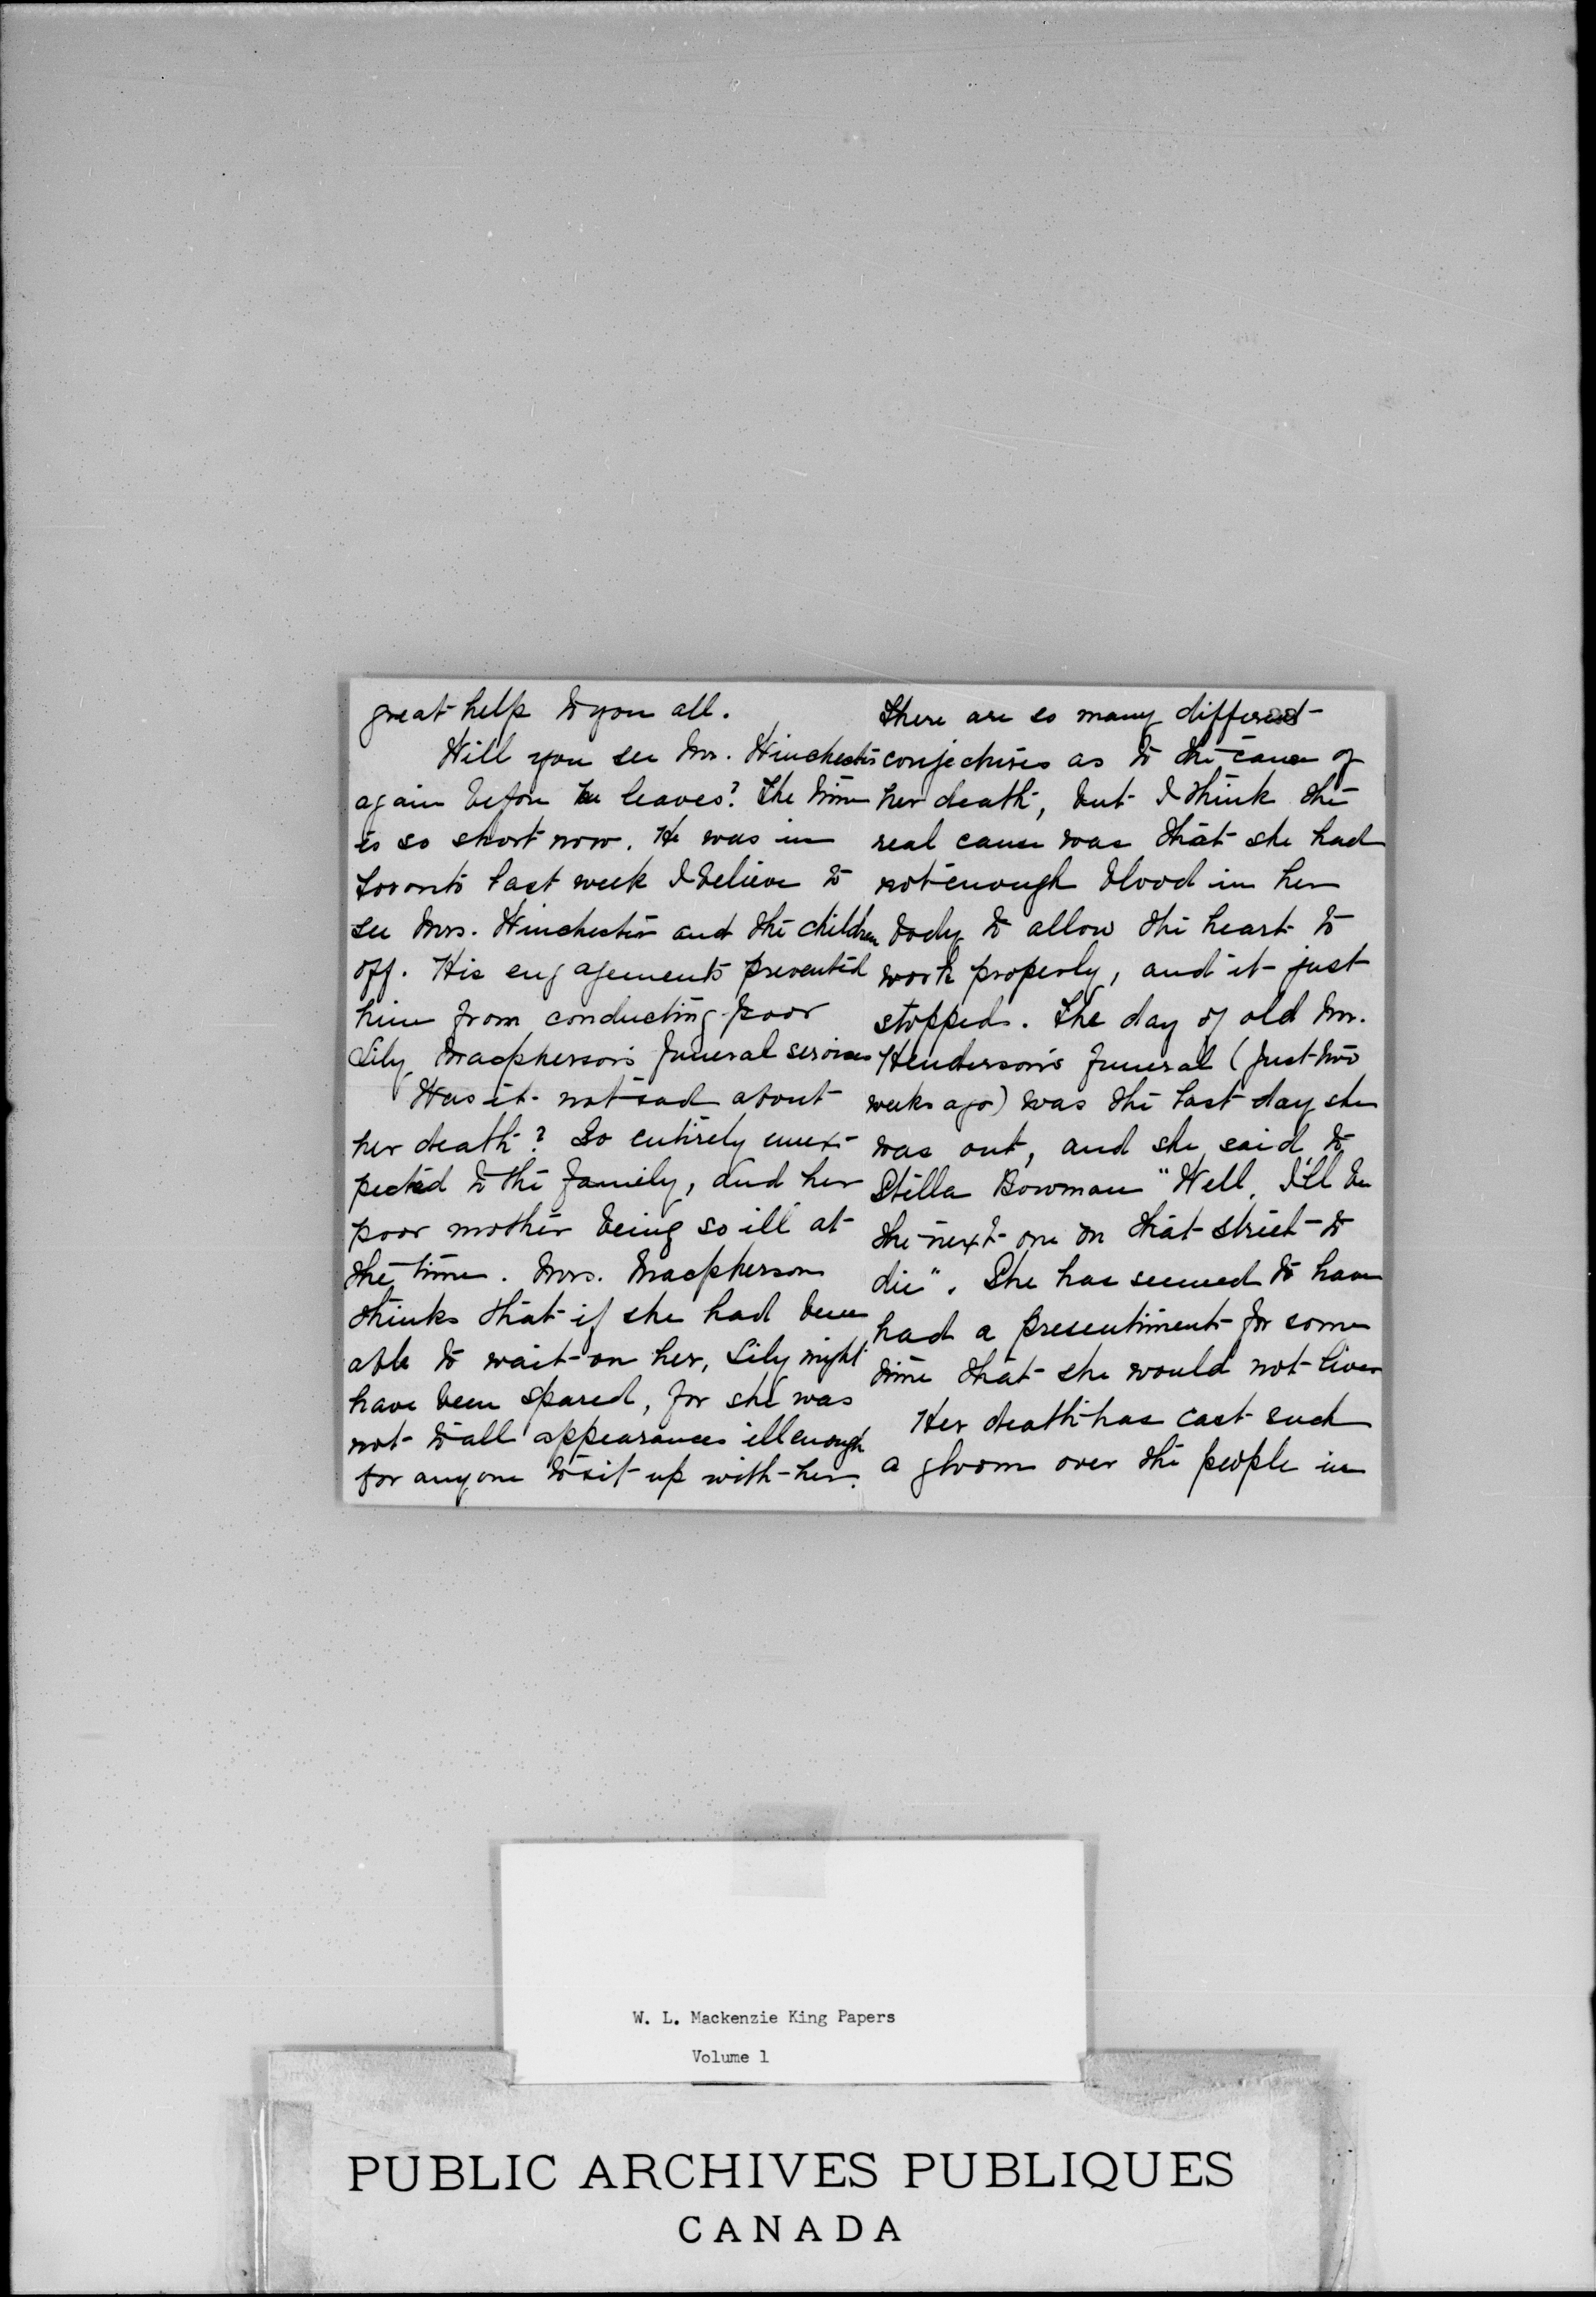 great help to you all.
Will you see Mr. Winchester
again before he leaves? The time
is so short now. He was in
Toronto last week I believe to
see Mrs. Winchester and the children
off. His engagements prevented
him from conducting poor
Lily Macpherson's funeral services
Was it not sad about
her death? So entirely unex-
pected to the family, and her
poor mother being so ill at
the time. Mrs. Macpherson
thinks that if she had been
able to wait on her, Lily might
have been spared, for she was
not to all appearances ill enough
for anyone to sit up with her.
There are so many different
conjectures as to the cause of
her death, but I think the
real cause was that she had
not enough blood in her
body to allow the heart to
work properly, and it just
stopped. The day of old Mr.
Henderson's funeral (just two
weeks ago) was the last day she
was out, and she said to
Stella Bowman "Well, I'll be
the next one on that street to
die". She has seemed to have
had a presentiment for some
time that she would not live
Her death has cast such
a gloom over the people in
W. L. Mackenzie King Papers
Volume 1
PUBLIC ARCHIVES PUBLIQUES
CANADA